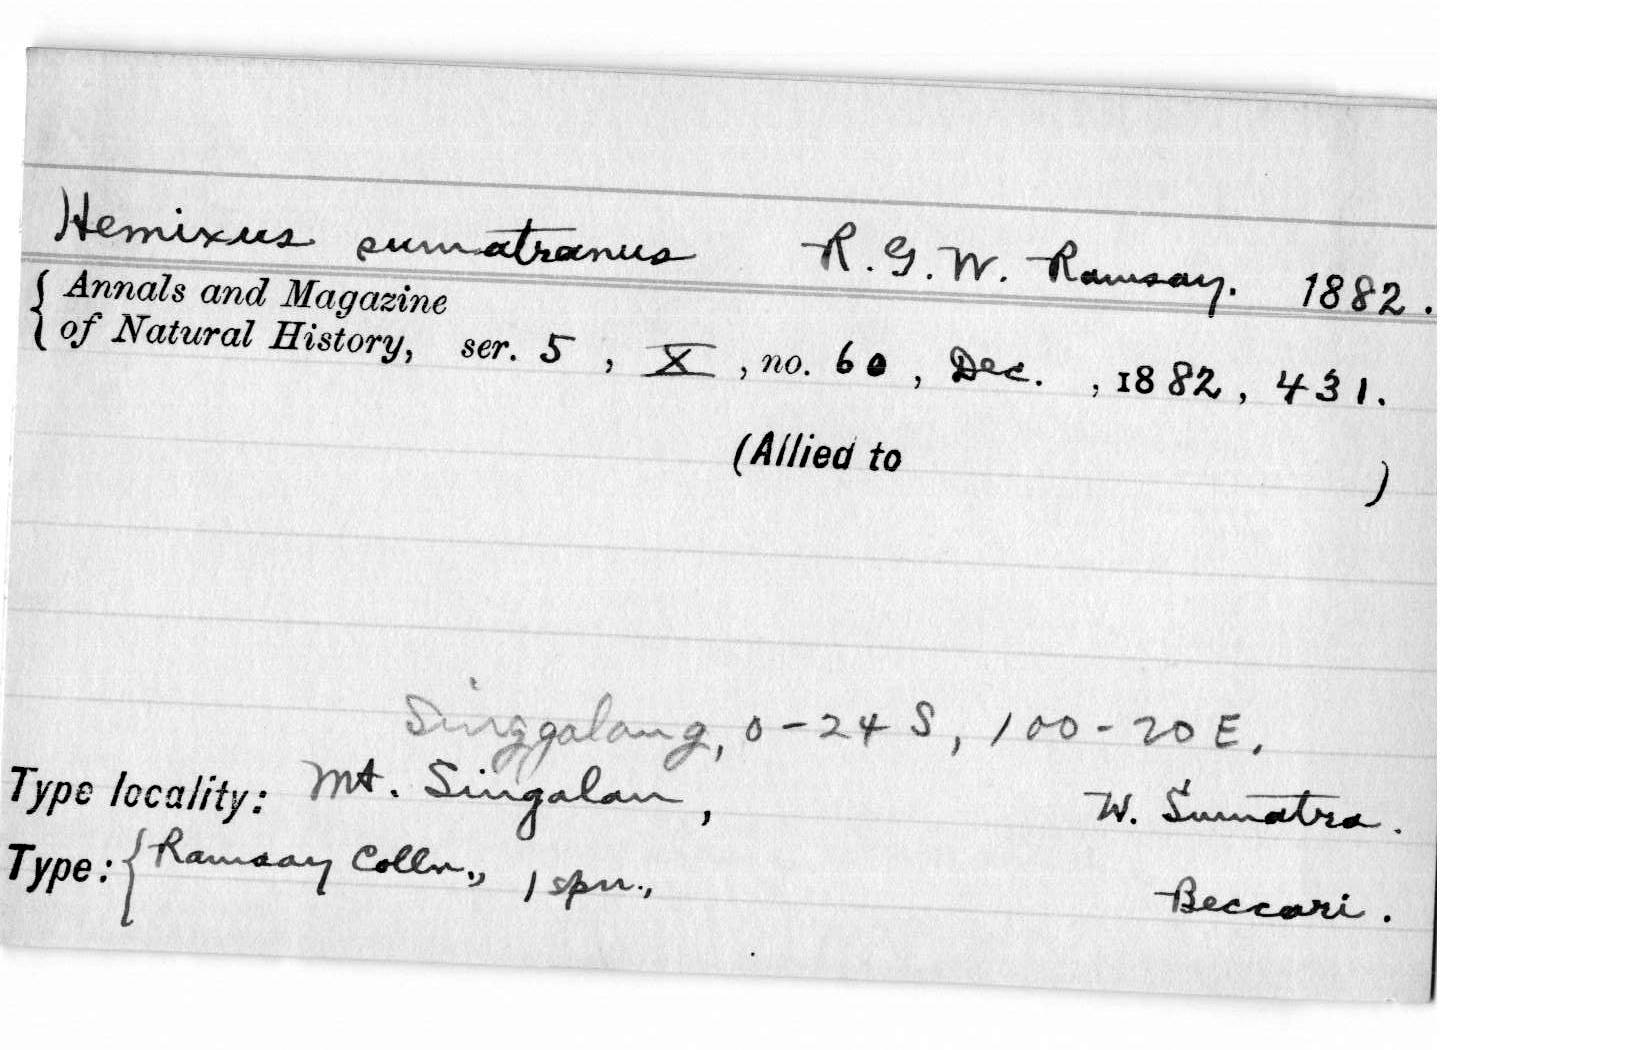 Hemixus sumatranus R. G. W. Ramsay. 1882.
{ Annals and Magazine
of Natural History, ser. 5, X, no. 60, Dec., 1882, 431.
(Allied to )
Singgalang, 0-24 S, 100-20 E.
Type locality: Mt. Singalan, W. Sumatra.
Type: { Ramsay Colln., 1 spn., Beccari.